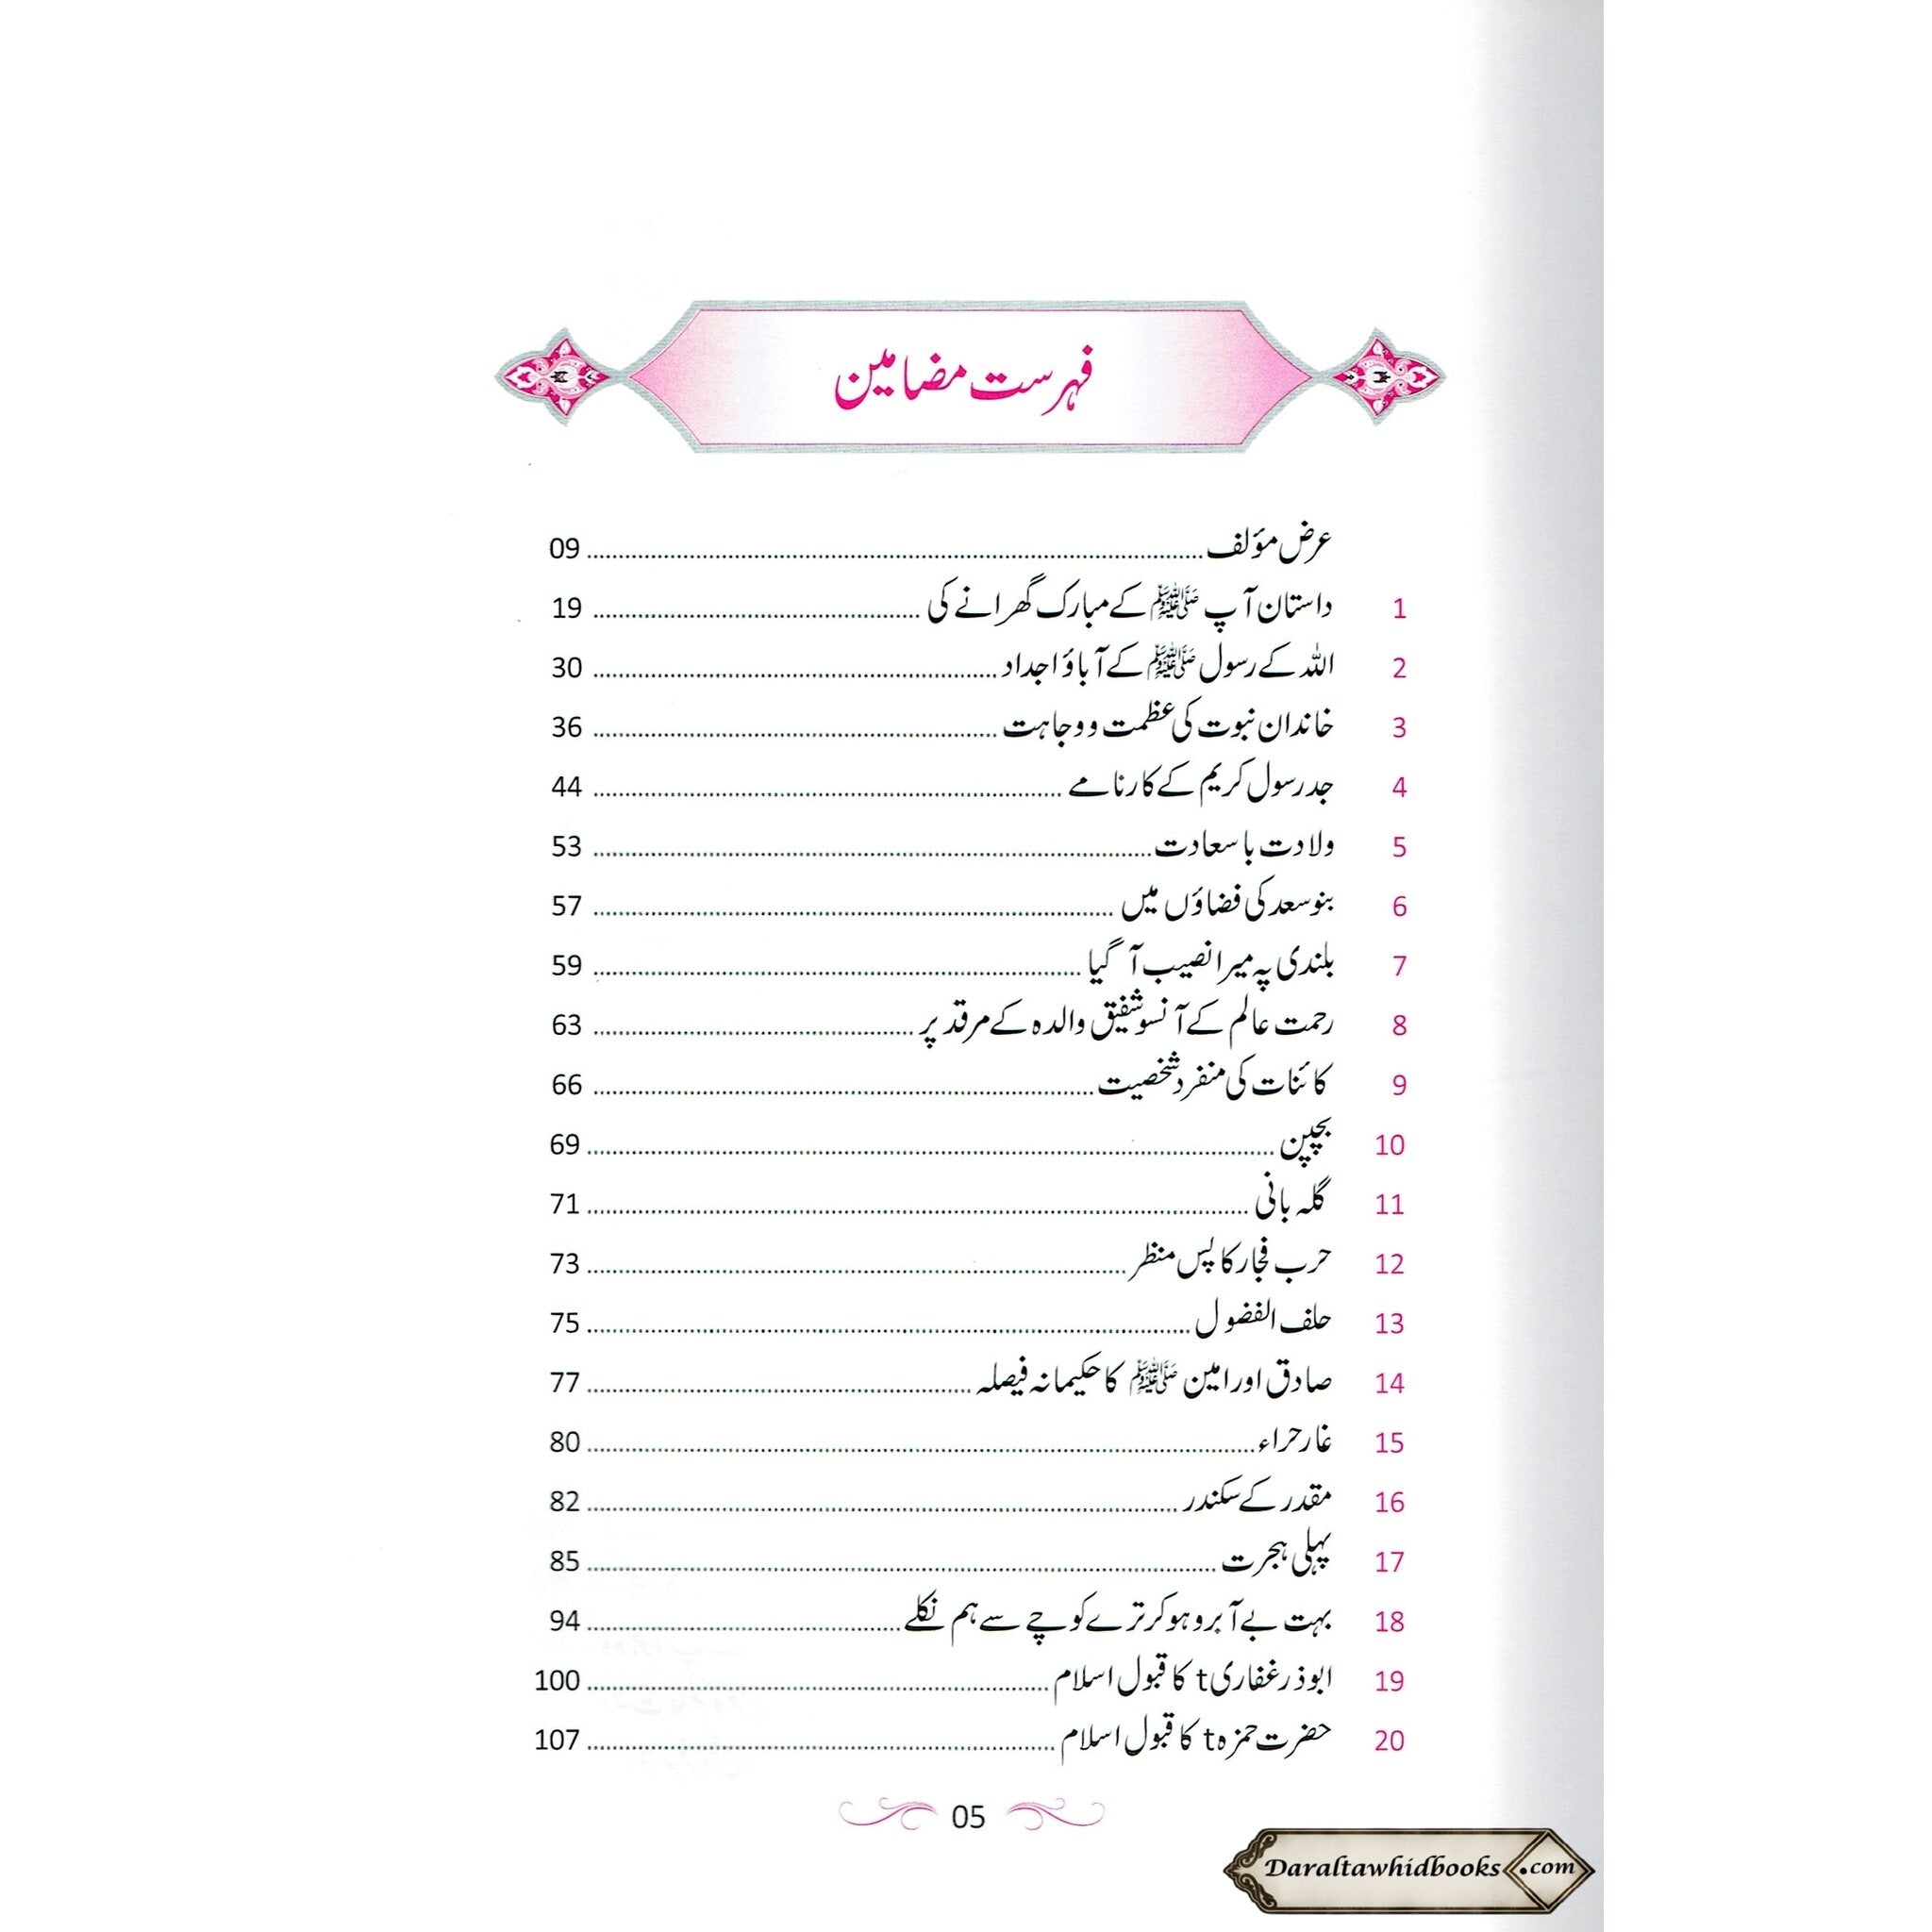 فہرست مضامین
عرض مؤلف ........ 09
1 داستان آپ ﷺ کے مبارک گھرانے کی ........ 19
2 اللہ کے رسول ﷺ کے آباؤ اجداد ........ 30
3 خاندان نبوت کی عظمت و وجاہت ........ 36
4 جد رسول کریم کے کارنامے ........ 44
5 ولادت باسعادت ........ 53
6 بنو سعد کی فضاؤں میں ........ 57
7 بلندی پہ میرا نصیب آ گیا ........ 59
8 رحمت عالم کے آنسو شفیق والدہ کے مرقد پر ........ 63
9 کائنات کی منفرد شخصیت ........ 66
10 بچپن ........ 69
11 گلہ بانی ........ 71
12 حرب فجار کا پس منظر ........ 73
13 حلف الفضول ........ 75
14 صادق اور امین ﷺ کا حکیمانہ فیصلہ ........ 77
15 غار حراء ........ 80
16 مقدر کے سکندر ........ 82
17 پہلی ہجرت ........ 85
18 بہت بے آبرو ہو کر ترے کوچے سے ہم نکلے ........ 94
19 ابوذر غفاری t کا قبول اسلام ........ 100
20 حضرت حمزہ t کا قبول اسلام ........ 107
05
Daraltawhidbooks.com